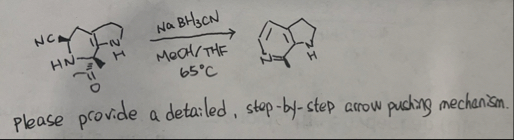 NaBH3CN
NC
N
H
HN
MeOH/THF
N
H
N
65°C
O
please provide a detailed, step-by-step arrow pushing mechanism.